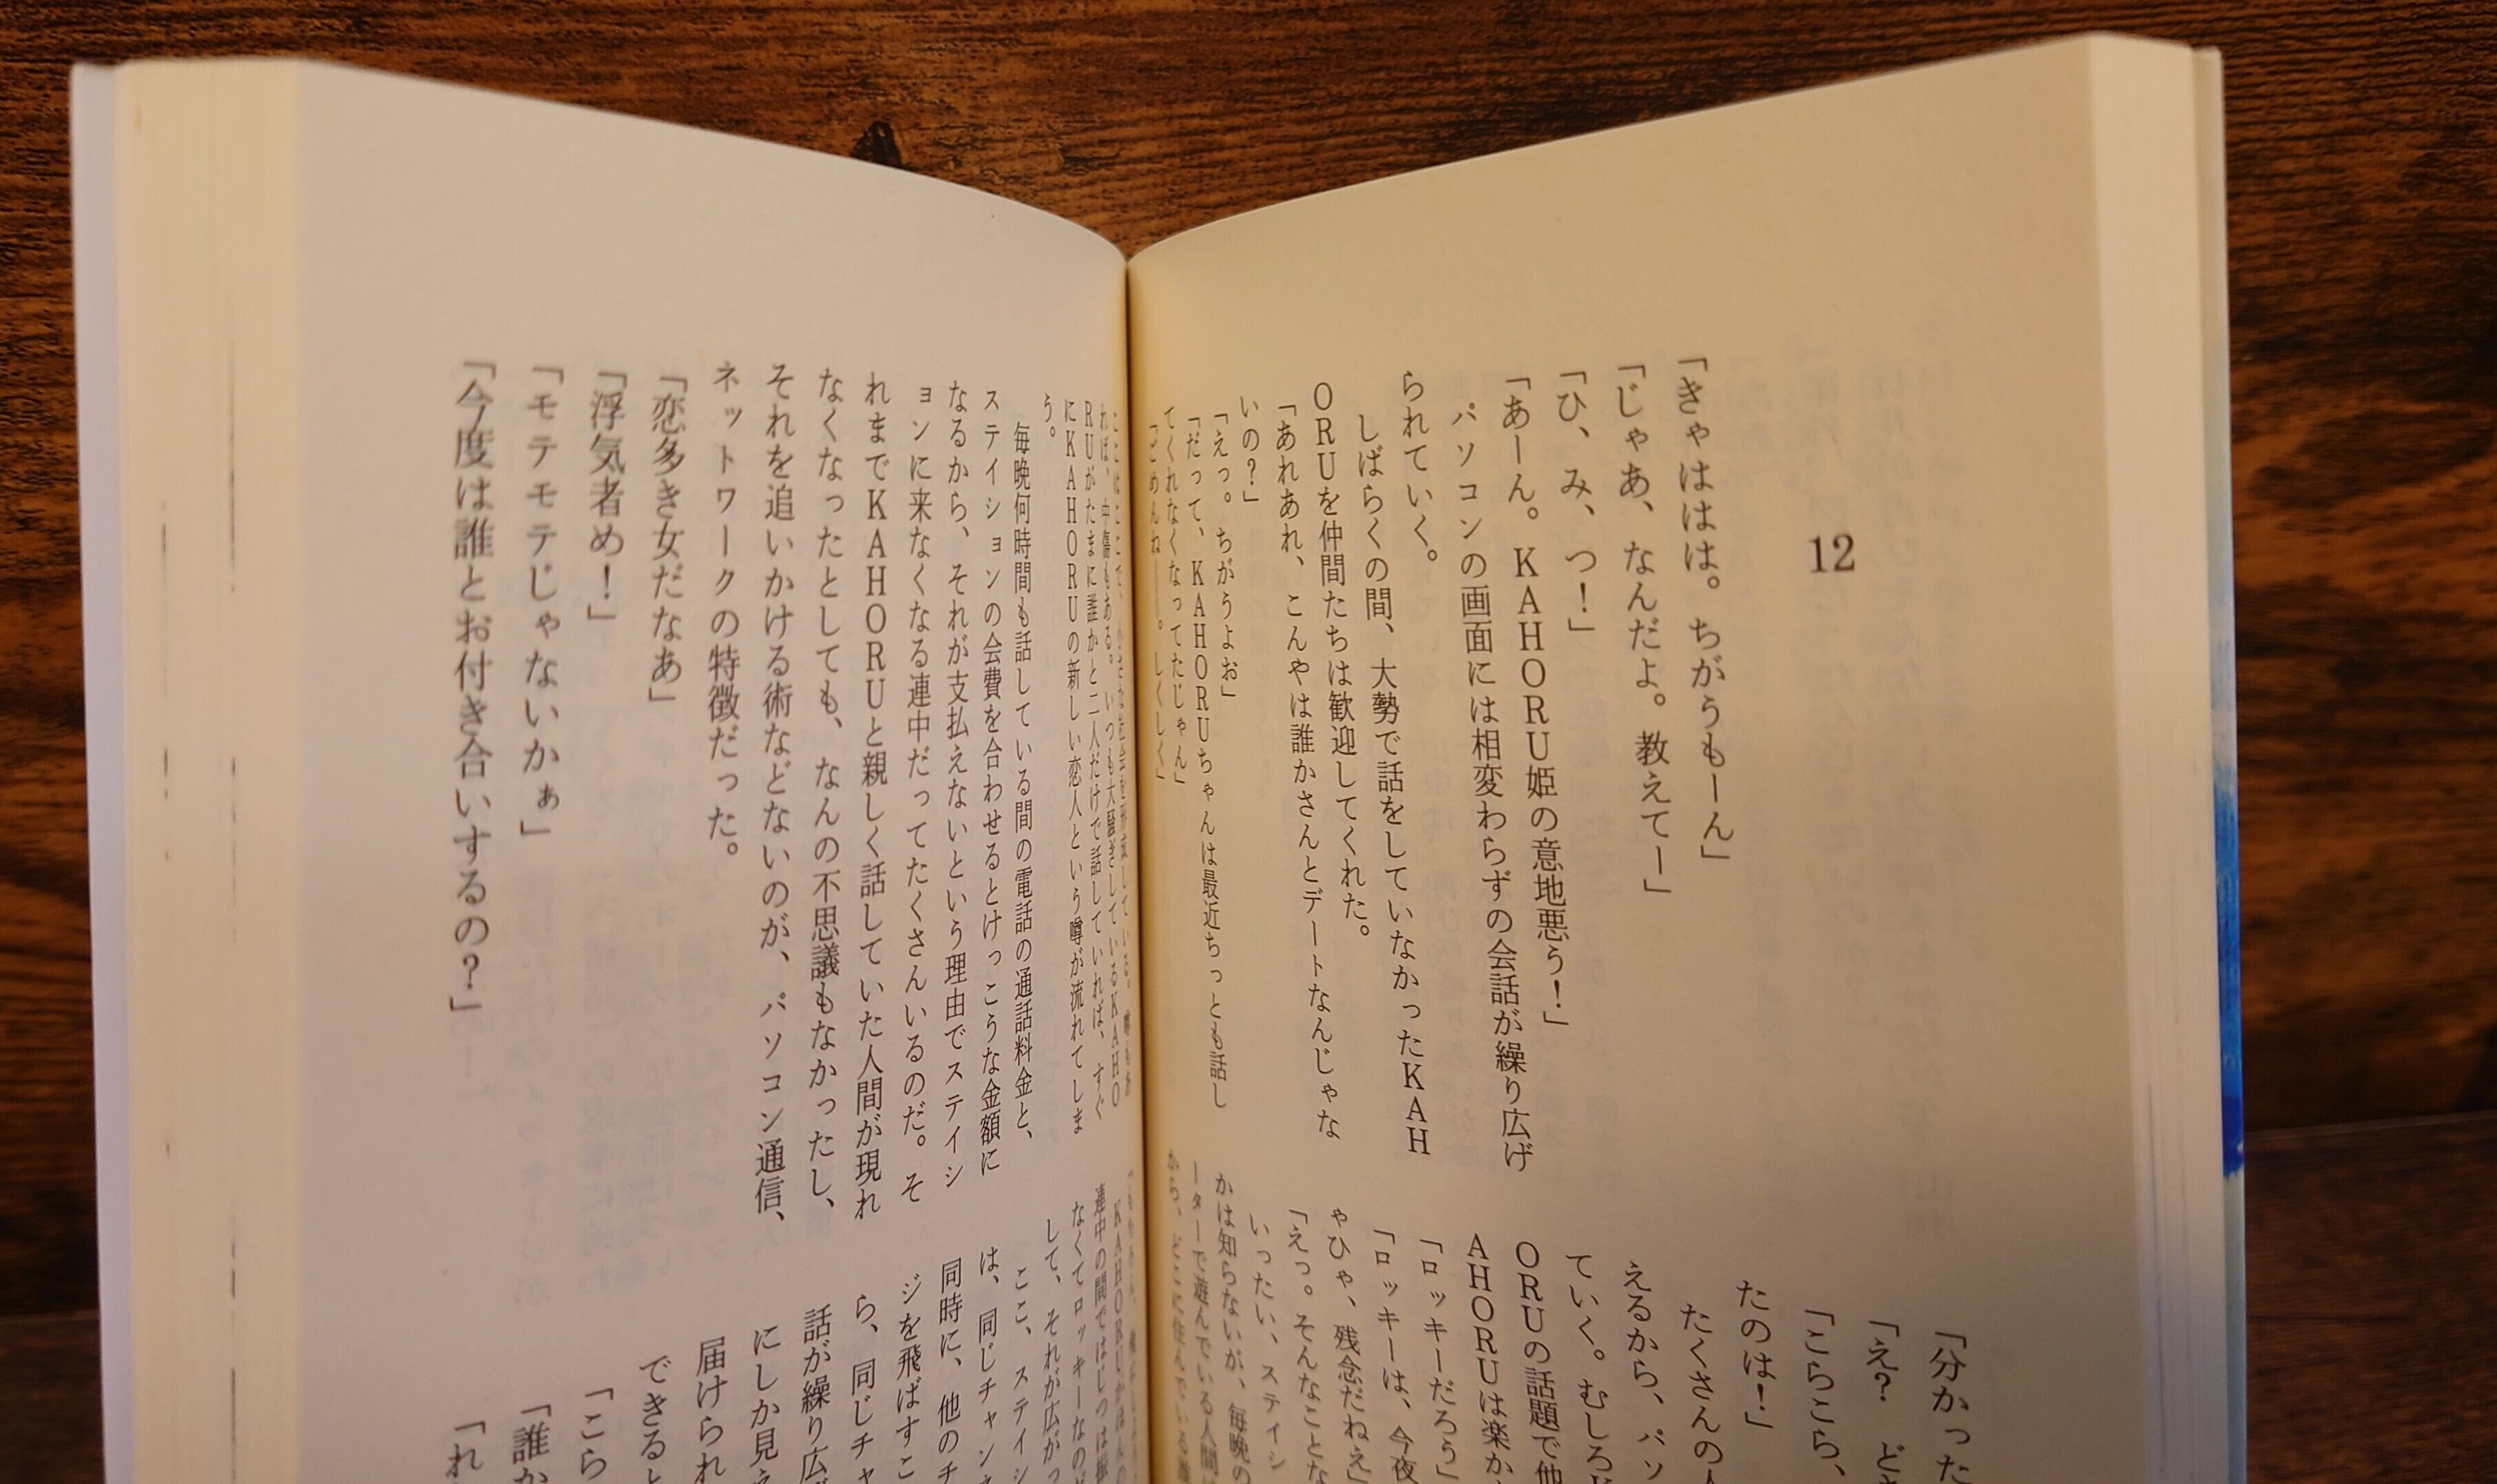 12
「きゃははは。ちがうもーん」
「じゃあ、なんだよ。教えてー」
「ひ、み、つ！」
「あーん。KAHORU姫の意地悪う！」
パソコンの画面には相変わらずの会話が繰り広げ
られていく。
しばらくの間、大勢で話をしていなかったKAH
ORUを仲間たちは歓迎してくれた。
「あれあれ、こんやは誰かさんとデートなんじゃな
いの？」
「えっ。ちがうよお」
「だって、KAHORUちゃんは最近ちっとも話し
てくれなくなってたじゃん」
「ごめんね――。しくしく」
「分かった
「え？　ど
「こらこら、
たのは！」
たくさんの人
えるから、パソ
ていく。むしろ
ORUの話題で他
AHORUは楽か
「ロッキーだろう」
「ロッキーは、今夜
ゃひゃ、残念だねえ」
「えっ。そんなことな
いったい、ステイシ
かは知らないが、毎晩の
ーターで遊んでいる人間
から、どこに住んでいる
ここはここで、小さな社会を形成している。噂もあ
れば、中傷もある。いつも大騒ぎしているKAHO
RUがたまに誰かと二人だけで話していれば、すぐ
にKAHORUの新しい恋人という噂が流れてしま
う。
毎晩何時間も話している間の電話の通話料金と、
ステイションの会費を合わせるとけっこうな金額に
なるから、それが支払えないという理由でステイシ
ョンに来なくなる連中だってたくさんいるのだ。そ
れまでKAHORUと親しく話していた人間が現れ
なくなったとしても、なんの不思議もなかったし、
それを追いかける術などないのが、パソコン通信、
ネットワークの特徴だった。
「恋多き女だなあ」
「浮気者め！」
「モテモテじゃないかぁ」
「今度は誰とお付き合いするの？」
KAHORU
連中の間ではじつは
なくてロッキーなのだ
して、それが広がっ
ここ、ステイシ
は、同じチャンネ
同時に、他のチ
ジを飛ばすこ
ら、同じチャ
話が繰り広
にしか見え
届けられ
できると
「こら
「誰か
「れ